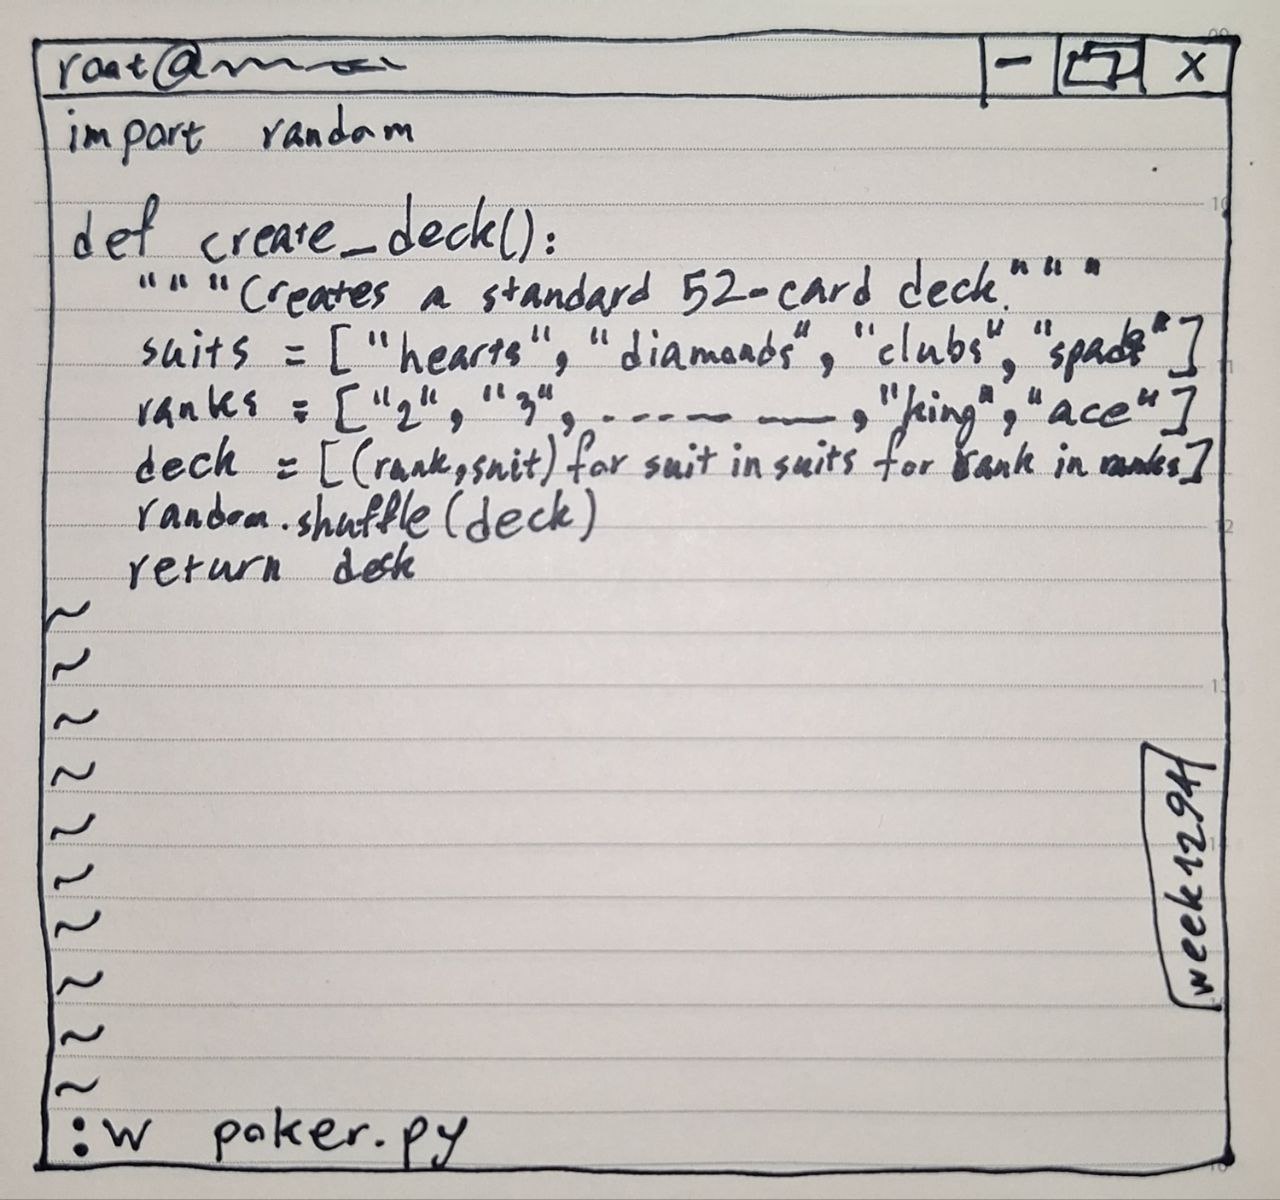 root@
- X
import random
def create_deck():
"""Creates a standard 52-card deck."""
suits = ["hearts", "diamonds", "clubs", "spade"]
ranks = ["2", "3", ---- — —, "king", "ace"]
deck = [(rank, suit) for suit in suits for rank in ranks]
random.shuffle(deck)
return deck
~
~
~
~
~
~
~
~
~
~
:w poker.py
10
11
12
13
14